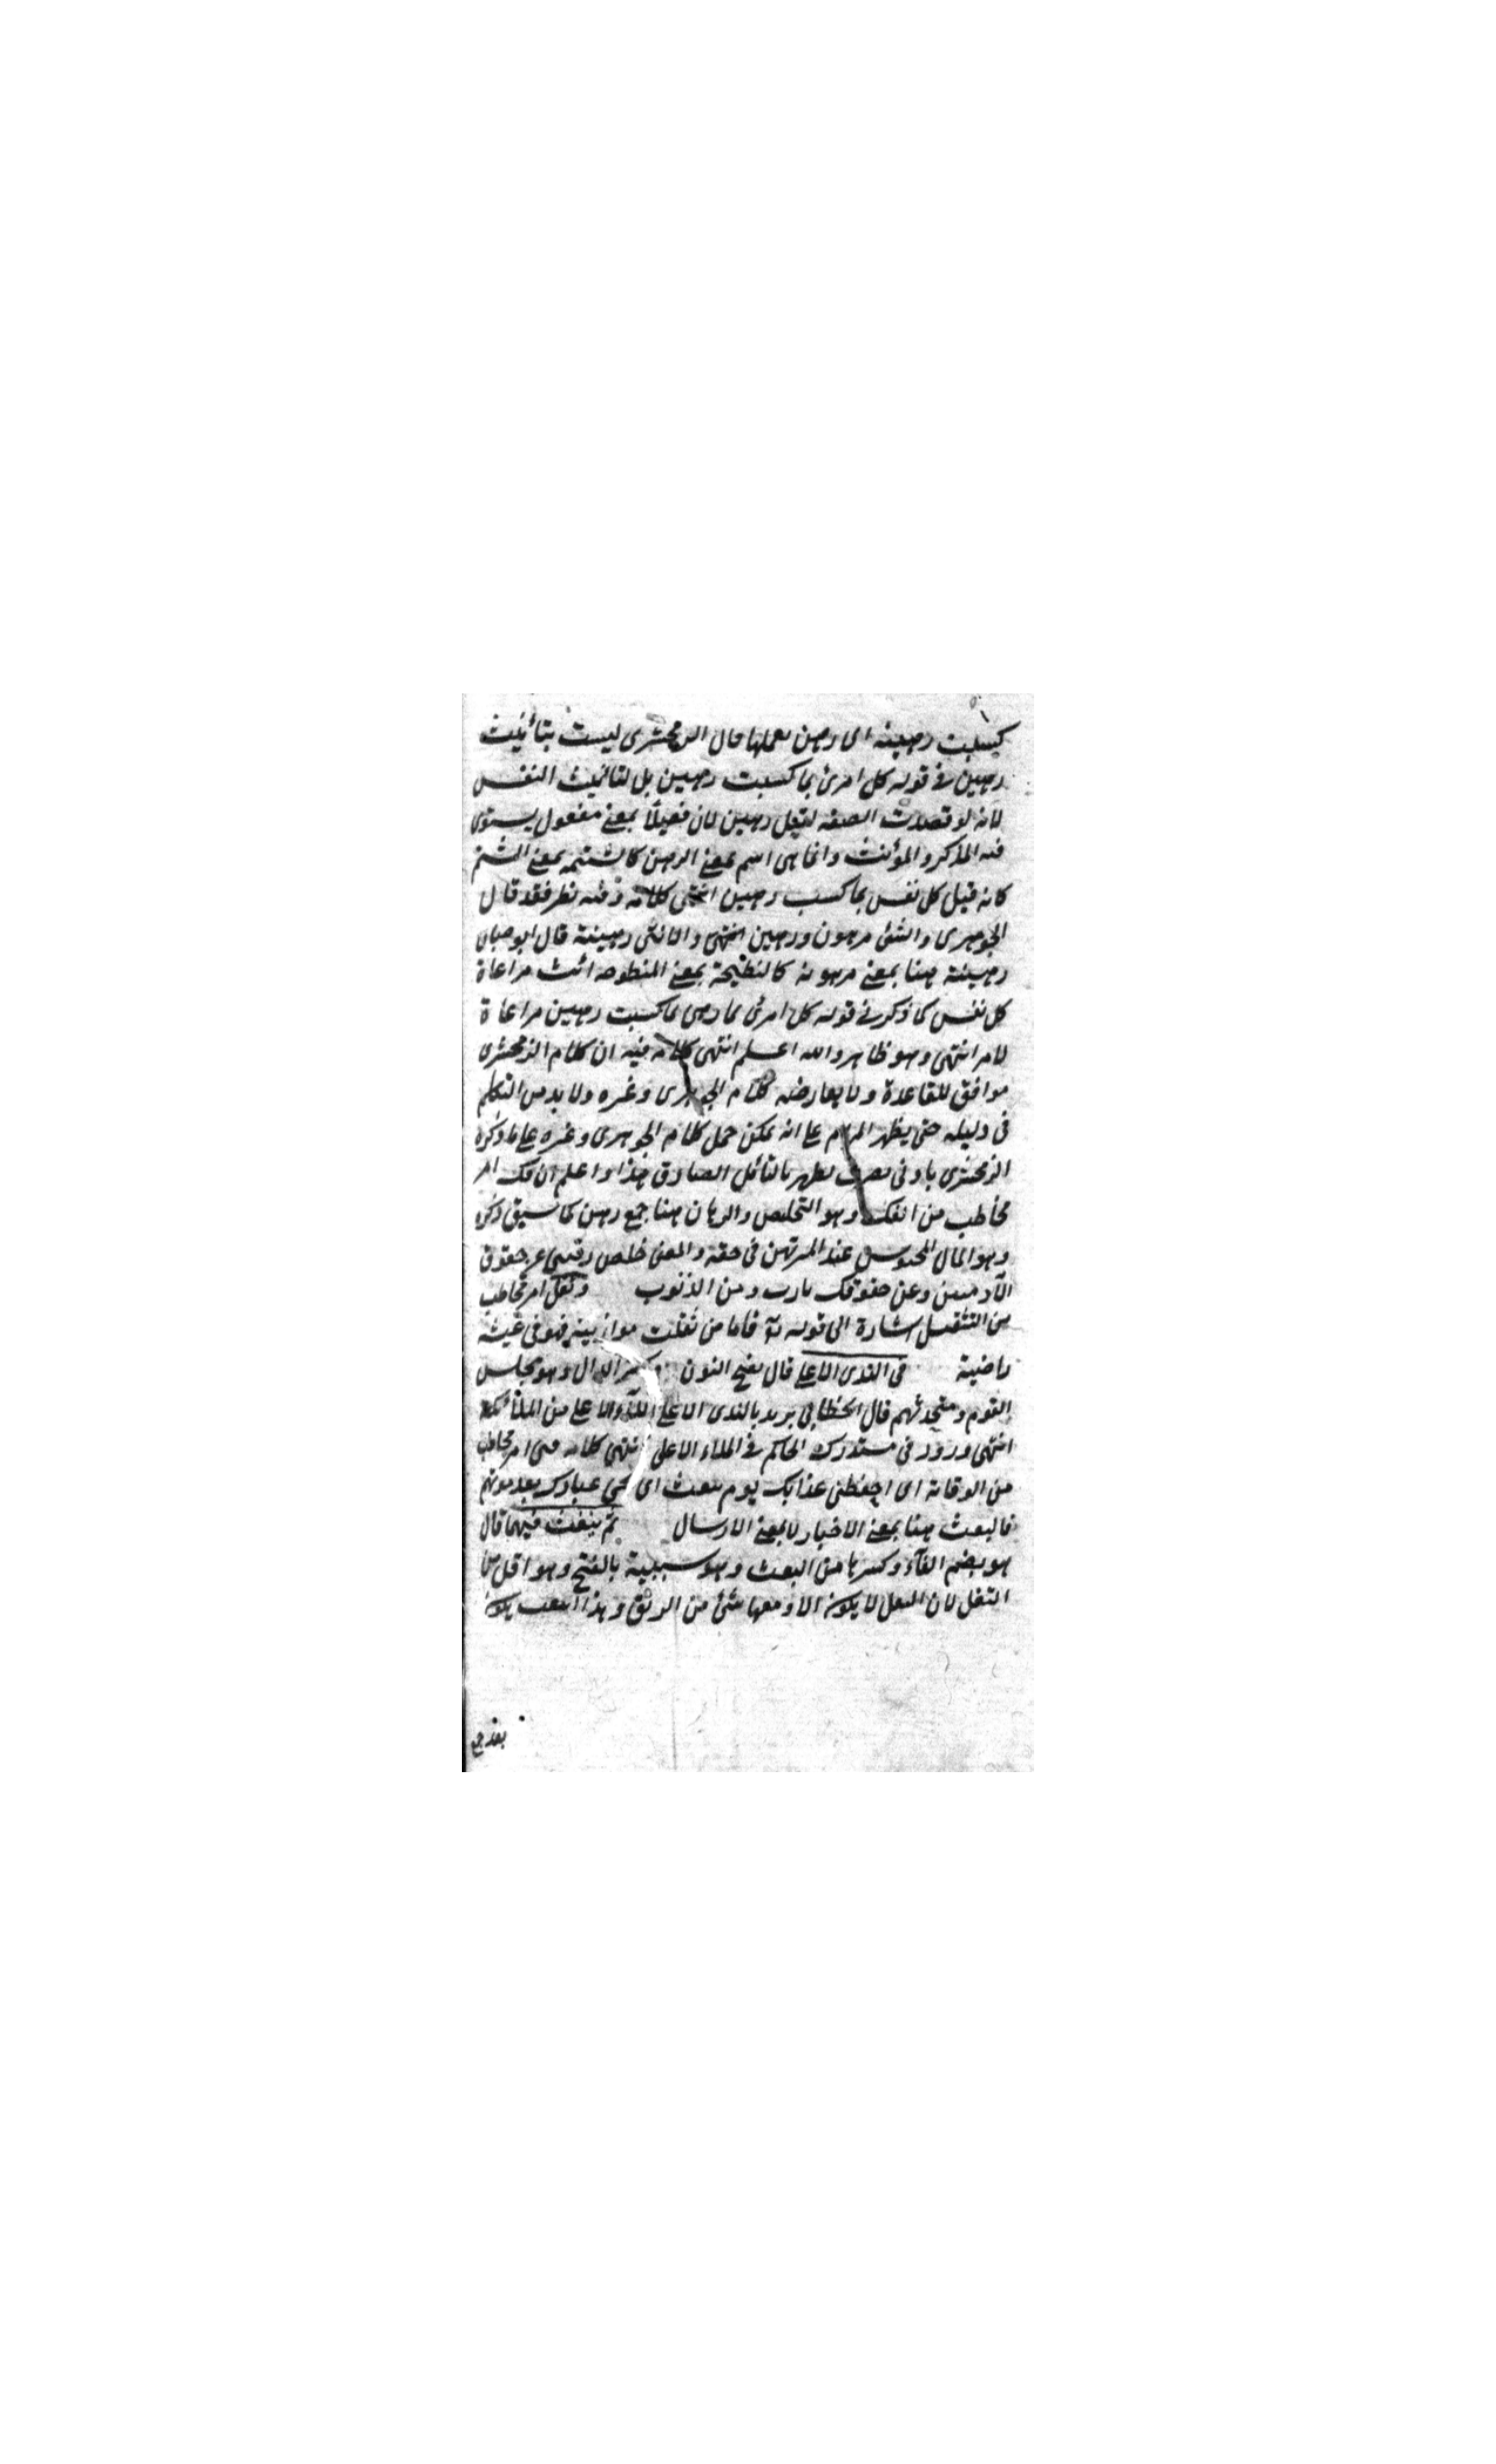 كسبت رهينة اى رهن بعملها قال الزمخشرى ليست بتأنيث
رهين في قوله كل امرئ بما كسبت رهين بل لتانيث النفس
لانه لو قصدت الصفه لقيل رهين لان فعيلا بمعنى مفعول يستوى
فيه المذكر والمؤنث وانما هى اسم بمعنى الرهن كالشتيمه بمعنى الشتم
كانه قيل كل نفس بما كسب رهين انتهى كلامه وفيه نظر فقد قال
الجوهرى والشئ مرهون ورهين انتهى والانثى رهينة قال ابو حيان
رهينة هنا بمعنى مرهونة كالنطيحة بمعنى المنطوحه انث مراعاة
كل نفس كما ذكر في قوله كل امرئ بما كسبت رهين مراعاة
لامر انتهى وهو ظاهر والله اعلم انتهى كلامه فيه ان كلام الزمخشرى
موافق للقاعدة ولا يعارضه كلام الجوهرى وغيره ولا بد من التكلم
فى دليله حتى يظهر المرام على انه يمكن حمل كلام الجوهرى وغيره على ما ذكره
الزمخشرى بادنى تصرف يظهر بالتأمل الصادق هذا واعلم ان فك امر
مخاطب من الفك وهو التخليص والرهان هنا جمع رهن كما سبق ذكره
وهو المال المحبوس عند المرتهن فى حقه والمعنى خلص رقبتى عن حقوق
الآدميين وعن حقوقك يارب ومن الذنوب وثقل امر مخاطب
من التثقيل اشارة الى قوله تعا فاما من ثقلت موازينه فهو فى عيشة
راضية فى الندى الاعلى قال بفتح النون وكسر الدال وهو مجلس
القوم ومتحدثهم قال الخطابى يريد بالندى الاعلى الملأ الاعلى من الملائكة
انتهى وورد فى مستدرك الحاكم في الملاء الاعلى انتهى كلامه قنى امر مخاطب
من الوقاية اى احفظنى عذابك يوم تبعث اى تحى عبادك بعد موتهم
فالبعث هنا بمعنى الاحياء لا بمعنى الارسال ثم ينفث فيهما قال
هو بضم الفآء وكسرها من النفث وهو شبيه بالنفخ وهو اقل من
التفل لان التفل لا يكون الا ومعها شئ من الريق وهذا النفث يكون
بعد جمع